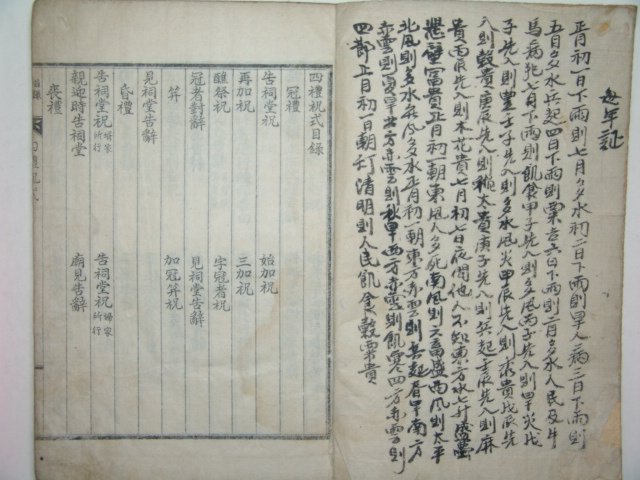 每年証
正月初一日下雨則七月多水初二日下雨則旱人病三日下雨則
五日多水兵起四日下雨則粟吉六日下雨則二月多水人民及牛
馬病死七月下雨則飢食甲子先入則多風丙子先入則旱災戊
子先入則豊壬子先入則多水風災甲辰先入則米貴戊辰先
入則穀貴庚辰先入則穐太貴庚子先入則兵起壬辰先入則麻
貴雨辰先入則木花貴七月初七日夜間他人不知東方水七斗盛
壁富貴正月初一朝東風人多死南風則六畜盛西風則太平
北風則多水兵卒多水正月初一朝東方赤雲則兵起春旱南方
赤雲則夏旱北方赤雲則秋旱西方赤雲則飢寒四方赤雲則
四部正月初一日朝行清明則人民飢食穀粟貴
四禮祝式目錄
冠禮
告祠堂祝 始加祝
再加祝 三加祝
醮祭祝 字冠者祝
冠者對辭 見祠堂告辭
筓 加冠筓祝
見祠堂告辭
昏禮
告祠堂祝 壻家所行 告祠堂祝 婦家所行
親迎時告祠堂 廟見告辭
喪禮